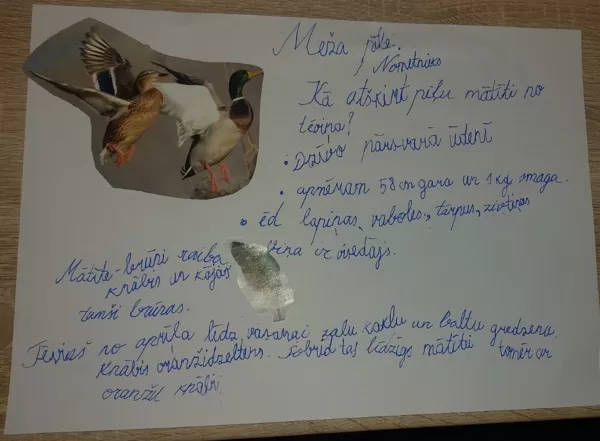 Meža pīle.
Nometnieks
Kā atšķirt pīļu mātīti no
tēviņa?
• Dzīvo pārsvarā ūdenī
• apmēram 58 cm gara un 1 kg smaga.
• ēd lapiņas, vaboles, tārpus, zivtiņas
Viņa ir visēdājs.
Mātīte - brūni raiba
Knābis un kājas
tumši brūnas.
Tēviņš no aprīļa līdz vasarai zaļu kaklu un baltu gredzenu.
Knābis oranždzeltens. Šobrīd tas līdzīgs mātītei tomēr ar
oranžu knābi